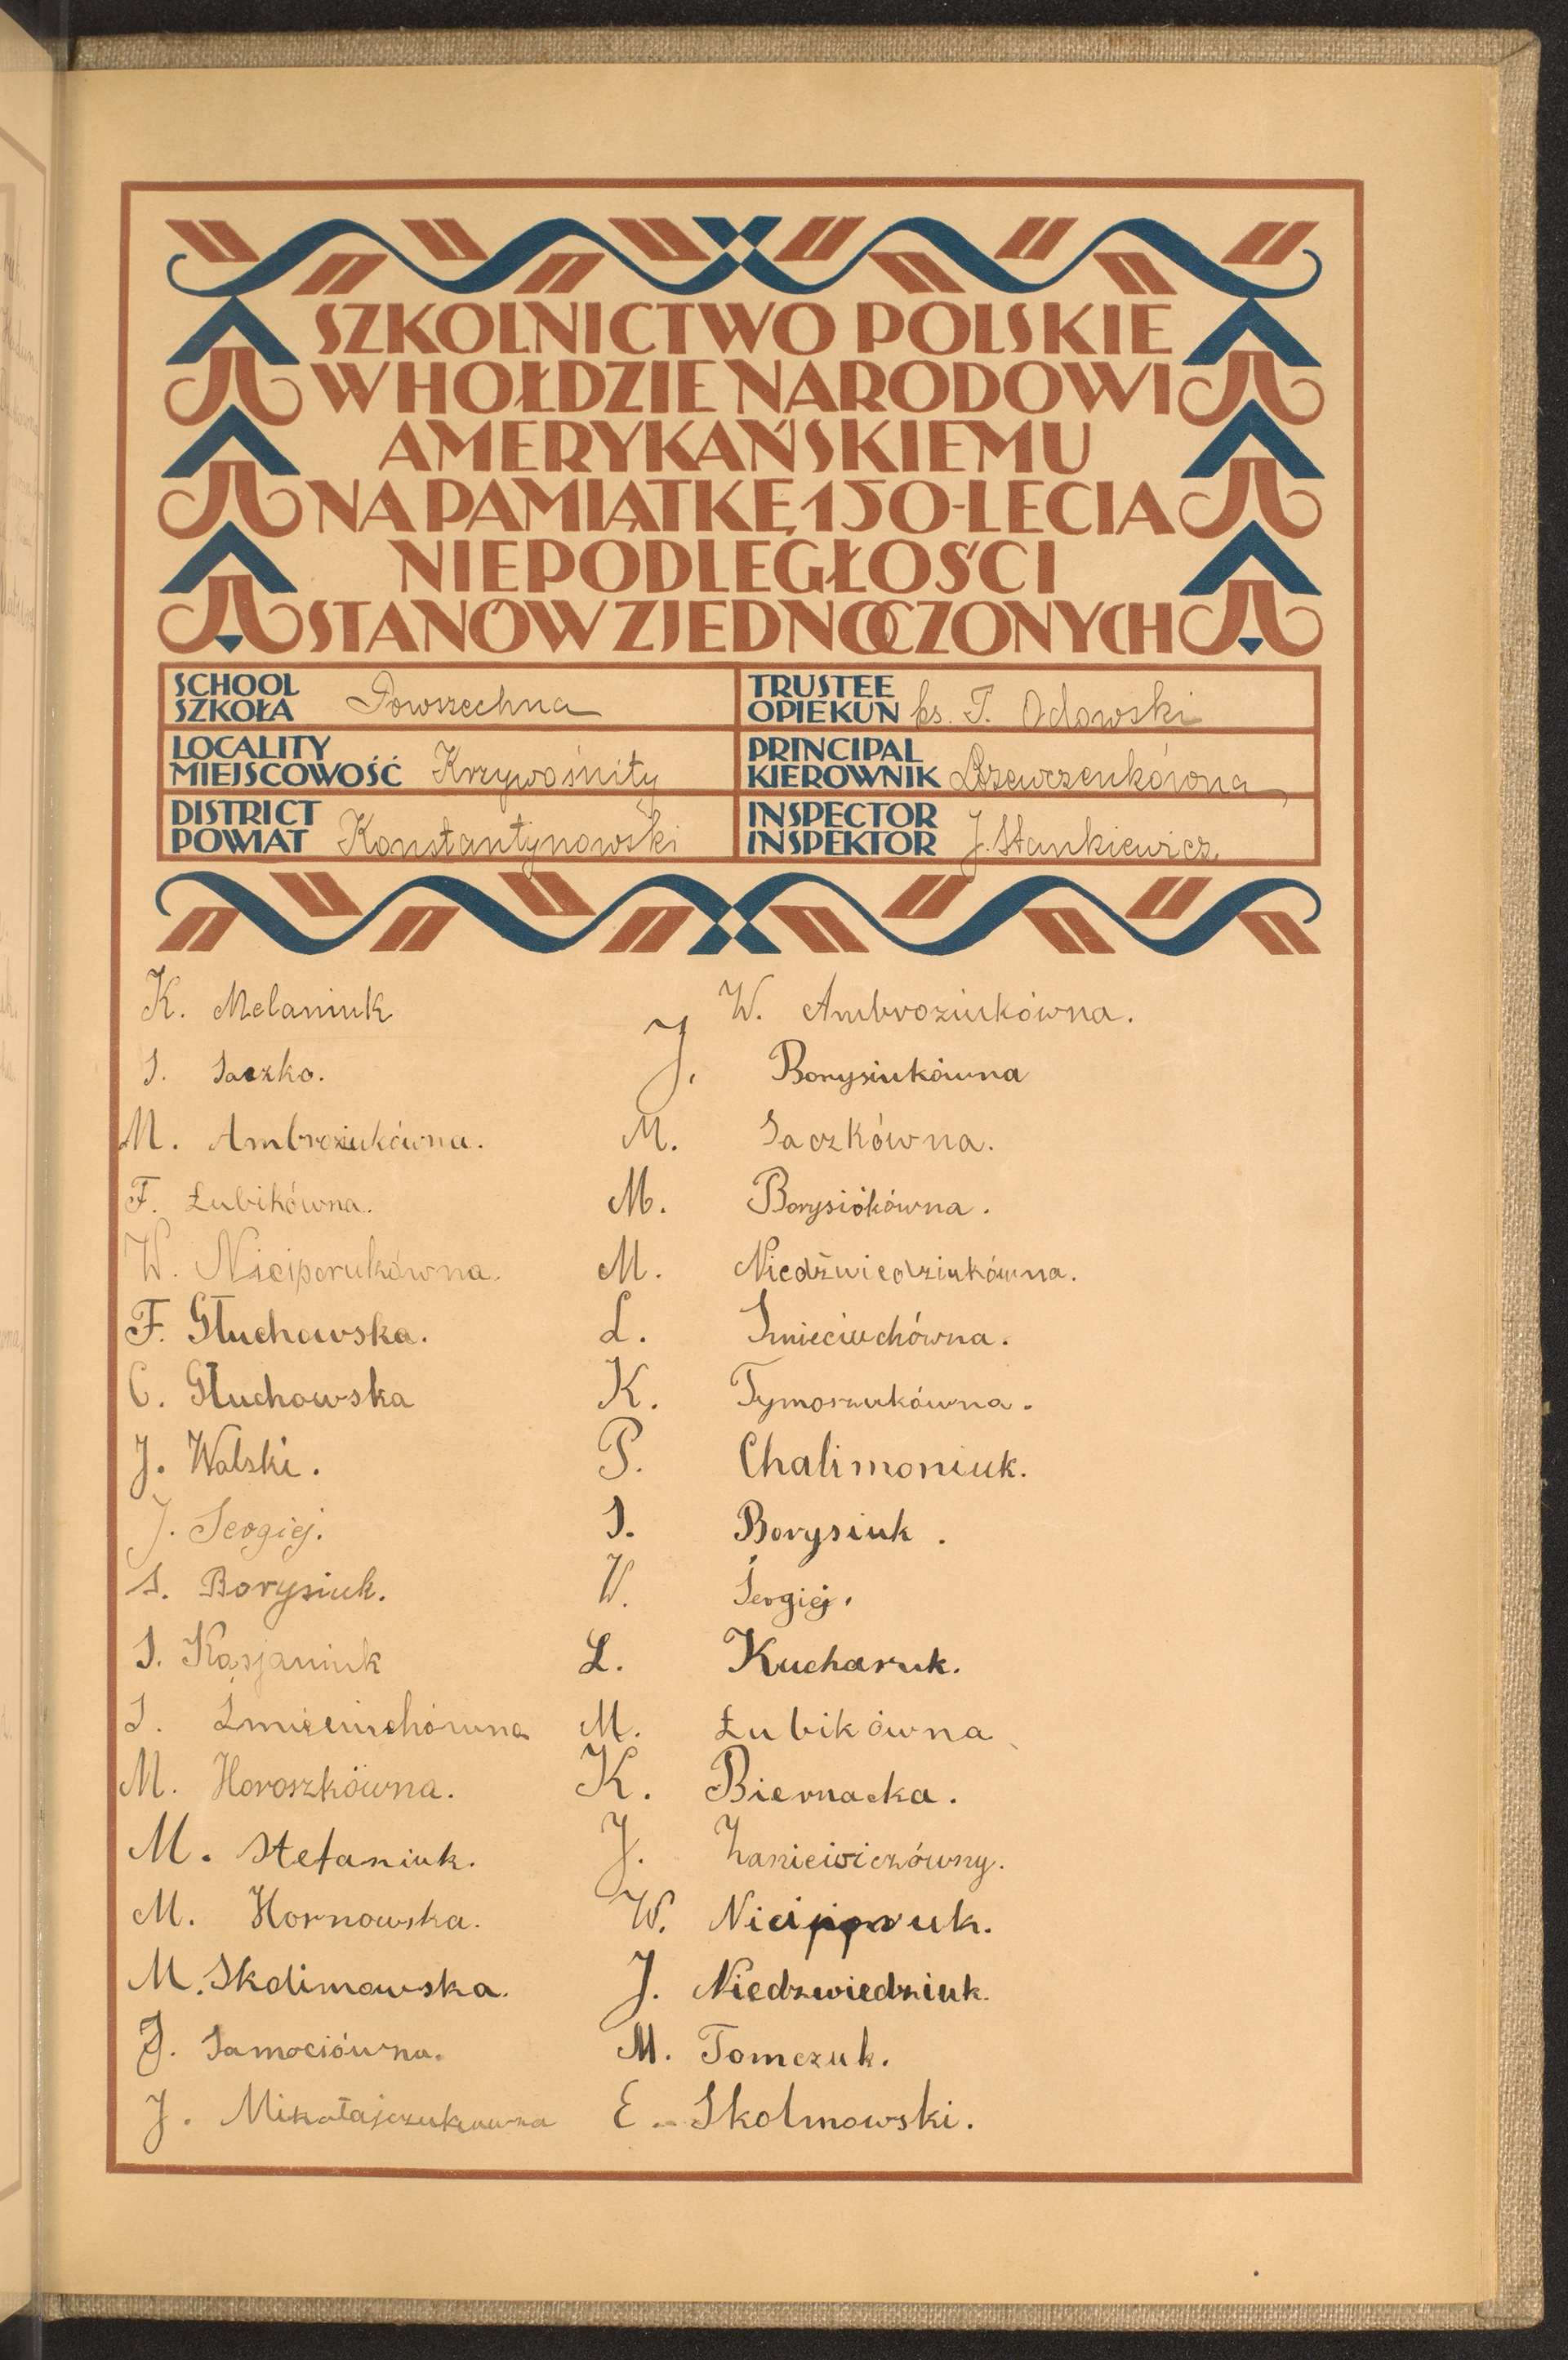 SZKOLNICTWO POLSKIE
W HOŁDZIE NARODOWI
AMERYKAŃSKIEMU
NA PAMIĄTKĘ 150-LECIA
NIEPODLEGŁOŚCI
STANÓW ZJEDNOCZONYCH
SCHOOL
SZKOŁA Powszechna
TRUSTEE
OPIEKUN ks. T. Odowski
LOCALITY
MIEJSCOWOŚĆ Krzywośnity
PRINCIPAL
KIEROWNIK
DISTRICT
POWIAT Konstantynowski
INSPECTOR
INSPEKTOR J. Stankiewicz.
K. Melaniuk
S. Saczko.
M. Ambroziukówna.
F. Łubikówna.
W. Niciporukówna.
F. Głuchowska.
C. Głuchowska
J. Walski.
J. Sergiej.
S. Borysiuk.
S. Kasjaniuk
S. Śmieciuchówna
M. Horoszkówna.
M. Stefaniuk.
M. Hornowska.
M. Skolimowska.
J. Samociówna.
J. Mikołajczukówna
W. Ambroziukówna.
J. Borysiukówna
M. Saczkówna.
M. Borysiókówna.
M. Niedźwiedziukówna.
L. Smieciuchówna.
K. Tymoszukówna.
P. Chalimoniuk.
S. Borysiuk.
W. Sergiej.
L. Kucharuk.
M. Łubikówna
K. Biernacka.
J. Zaniewiczówny.
W. Niciporuk.
J. Niedzwiedziuk.
M. Tomczuk.
E. Skolmowski.